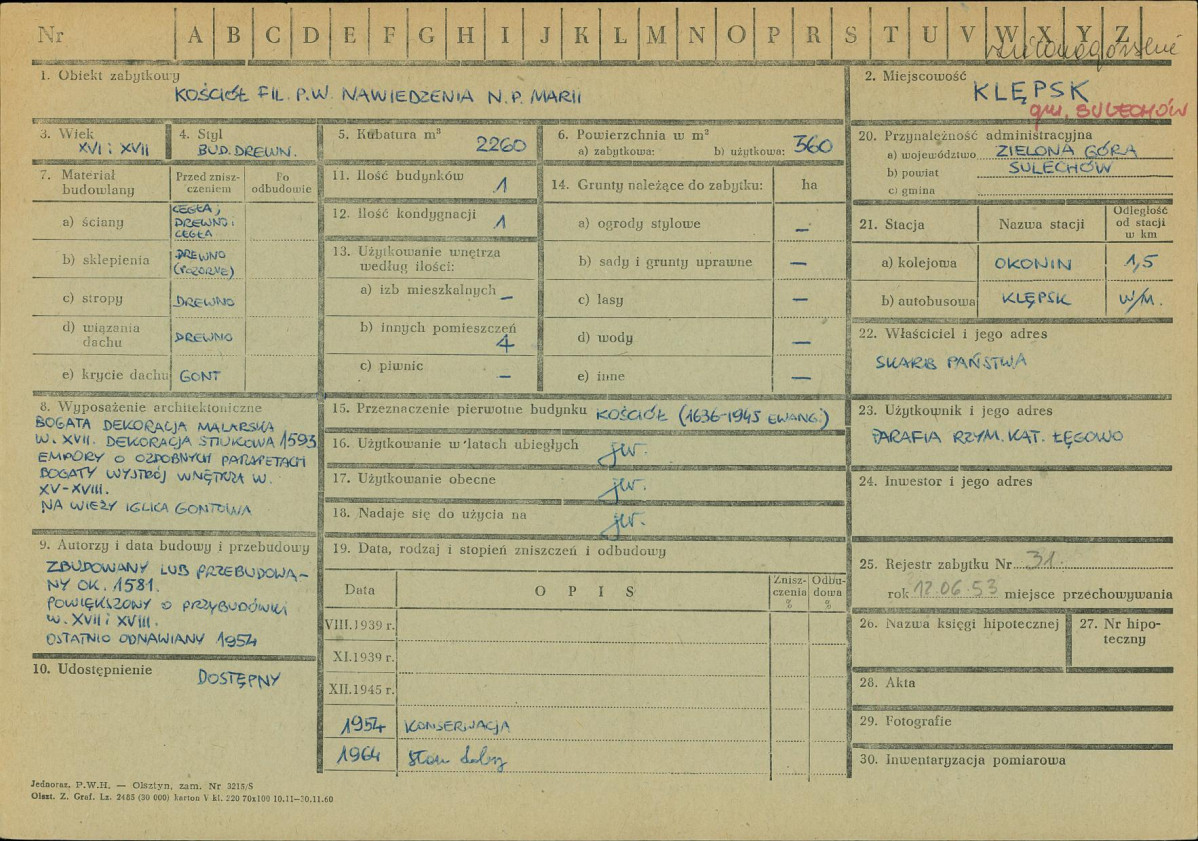 Nr A B C D E F G H I J K L M N O P R S T U V W X Y Z
1. Obiekt zabytkowy
KOŚCIÓŁ FIL. P.W. NAWIEDZENIA N.P. MARII
2. Miejscowość
KLĘPSK
gm. SULECHÓW
3. Wiek
XVI i XVII
4. Styl
BUD. DREWN.
5. Kubatura m³ 2260
6. Powierzchnia w m²
a) zabytkowa: b) użytkowa: 360
7. Materiał budowlany
Przed znisz-
czeniem
Po
odbudowie
a) ściany CEGŁA,
DREWNO i
CEGŁA
b) sklepienia DREWNO
(POZORNE)
c) stropy DREWNO
d) wiązania
dachu DREWNO
e) krycie dachu GONT
8. Wyposażenie architektoniczne
BOGATA DEKORACJA MALARSKA
W. XVII. DEKORACJA STIUKOWA 1593
EMPORY O OZDOBNYCH PARAPETACH
BOGATY WYSTRÓJ WNĘTRZA W.
XV-XVIII.
NA WIEŻY IGLICA GONTOWA
9. Autorzy i data budowy i przebudowy
ZBUDOWANY LUB PRZEBUDOWA-
NY OK. 1581.
POWIĘKSZONY O PRZYBUDÓWKI
W. XVII i XVIII.
OSTATNIO ODNAWIANY 1954
10. Udostępnienie
DOSTĘPNY
11. Ilość budynków 1
12. Ilość kondygnacji 1
13. Użytkowanie wnętrza
według ilości:
a) izb mieszkalnych –
b) innych pomieszczeń
4
c) piwnic –
14. Grunty należące do zabytku: ha
a) ogrody stylowe –
b) sady i grunty uprawne –
c) lasy –
d) wody –
e) inne –
15. Przeznaczenie pierwotne budynku KOŚCIÓŁ (1636-1945 EWANG.)
16. Użytkowanie w latach ubiegłych jw.
17. Użytkowanie obecne jw.
18. Nadaje się do użycia na jw.
19. Data, rodzaj i stopień zniszczeń i odbudowy
Data OPIS Znisz-
czenia
% Odbu-
dowa
%
VIII.1939 r.
XI.1939 r.
XII.1945 r.
1954 KONSERWACJA
1964 stan dobry
20. Przynależność administracyjna
a) województwo ZIELONA GÓRA
b) powiat SULECHÓW
c) gmina
21. Stacja Nazwa stacji Odległość
od stacji
w km
a) kolejowa OKONIN 1,5
b) autobusowa KLĘPSK W/M.
22. Właściciel i jego adres
SKARB PAŃSTWA
23. Użytkownik i jego adres
PARAFIA RZYM. KAT. ŁĘGOWO
24. Inwestor i jego adres
25. Rejestr zabytku Nr 31.
rok 12.06.53 miejsce przechowywania
26. Nazwa księgi hipotecznej
27. Nr hipo-
teczny
28. Akta
29. Fotografie
30. Inwentaryzacja pomiarowa
Jednoraz. P.W.H. — Olsztyn, zam. Nr 3215/S
Olszt. Z. Graf. Lz. 2485 (30 000) karton V kl. 220 70x100 10.11—30.11.60